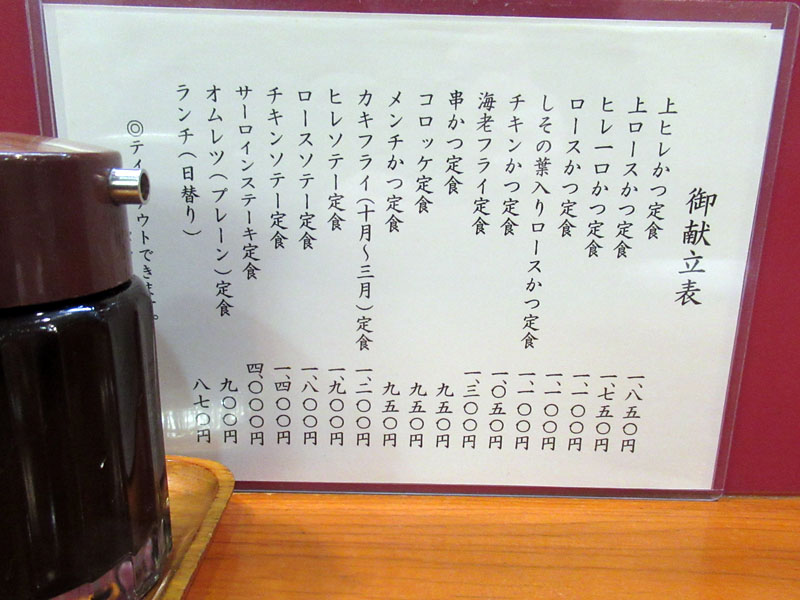 御献立表
上ヒレかつ定食 一、八五〇円
上ロースかつ定食 一、七五〇円
ヒレ一口かつ定食 一、一〇〇円
ロースかつ定食 一、一〇〇円
しその葉入りロースかつ定食 一、一〇〇円
チキンかつ定食 一、〇五〇円
海老フライ定食 一、三〇〇円
串かつ定食 九五〇円
コロッケ定食 九五〇円
メンチかつ定食 九五〇円
カキフライ(十月～三月)定食 一、二〇〇円
ヒレソテー定食 一、九〇〇円
ロースソテー定食 一、八〇〇円
チキンソテー定食 一、四〇〇円
サーロインステーキ定食 四、〇〇〇円
オムレツ(プレーン)定食 九〇〇円
ランチ(日替り) 八七〇円
◎ティ ウトできます。